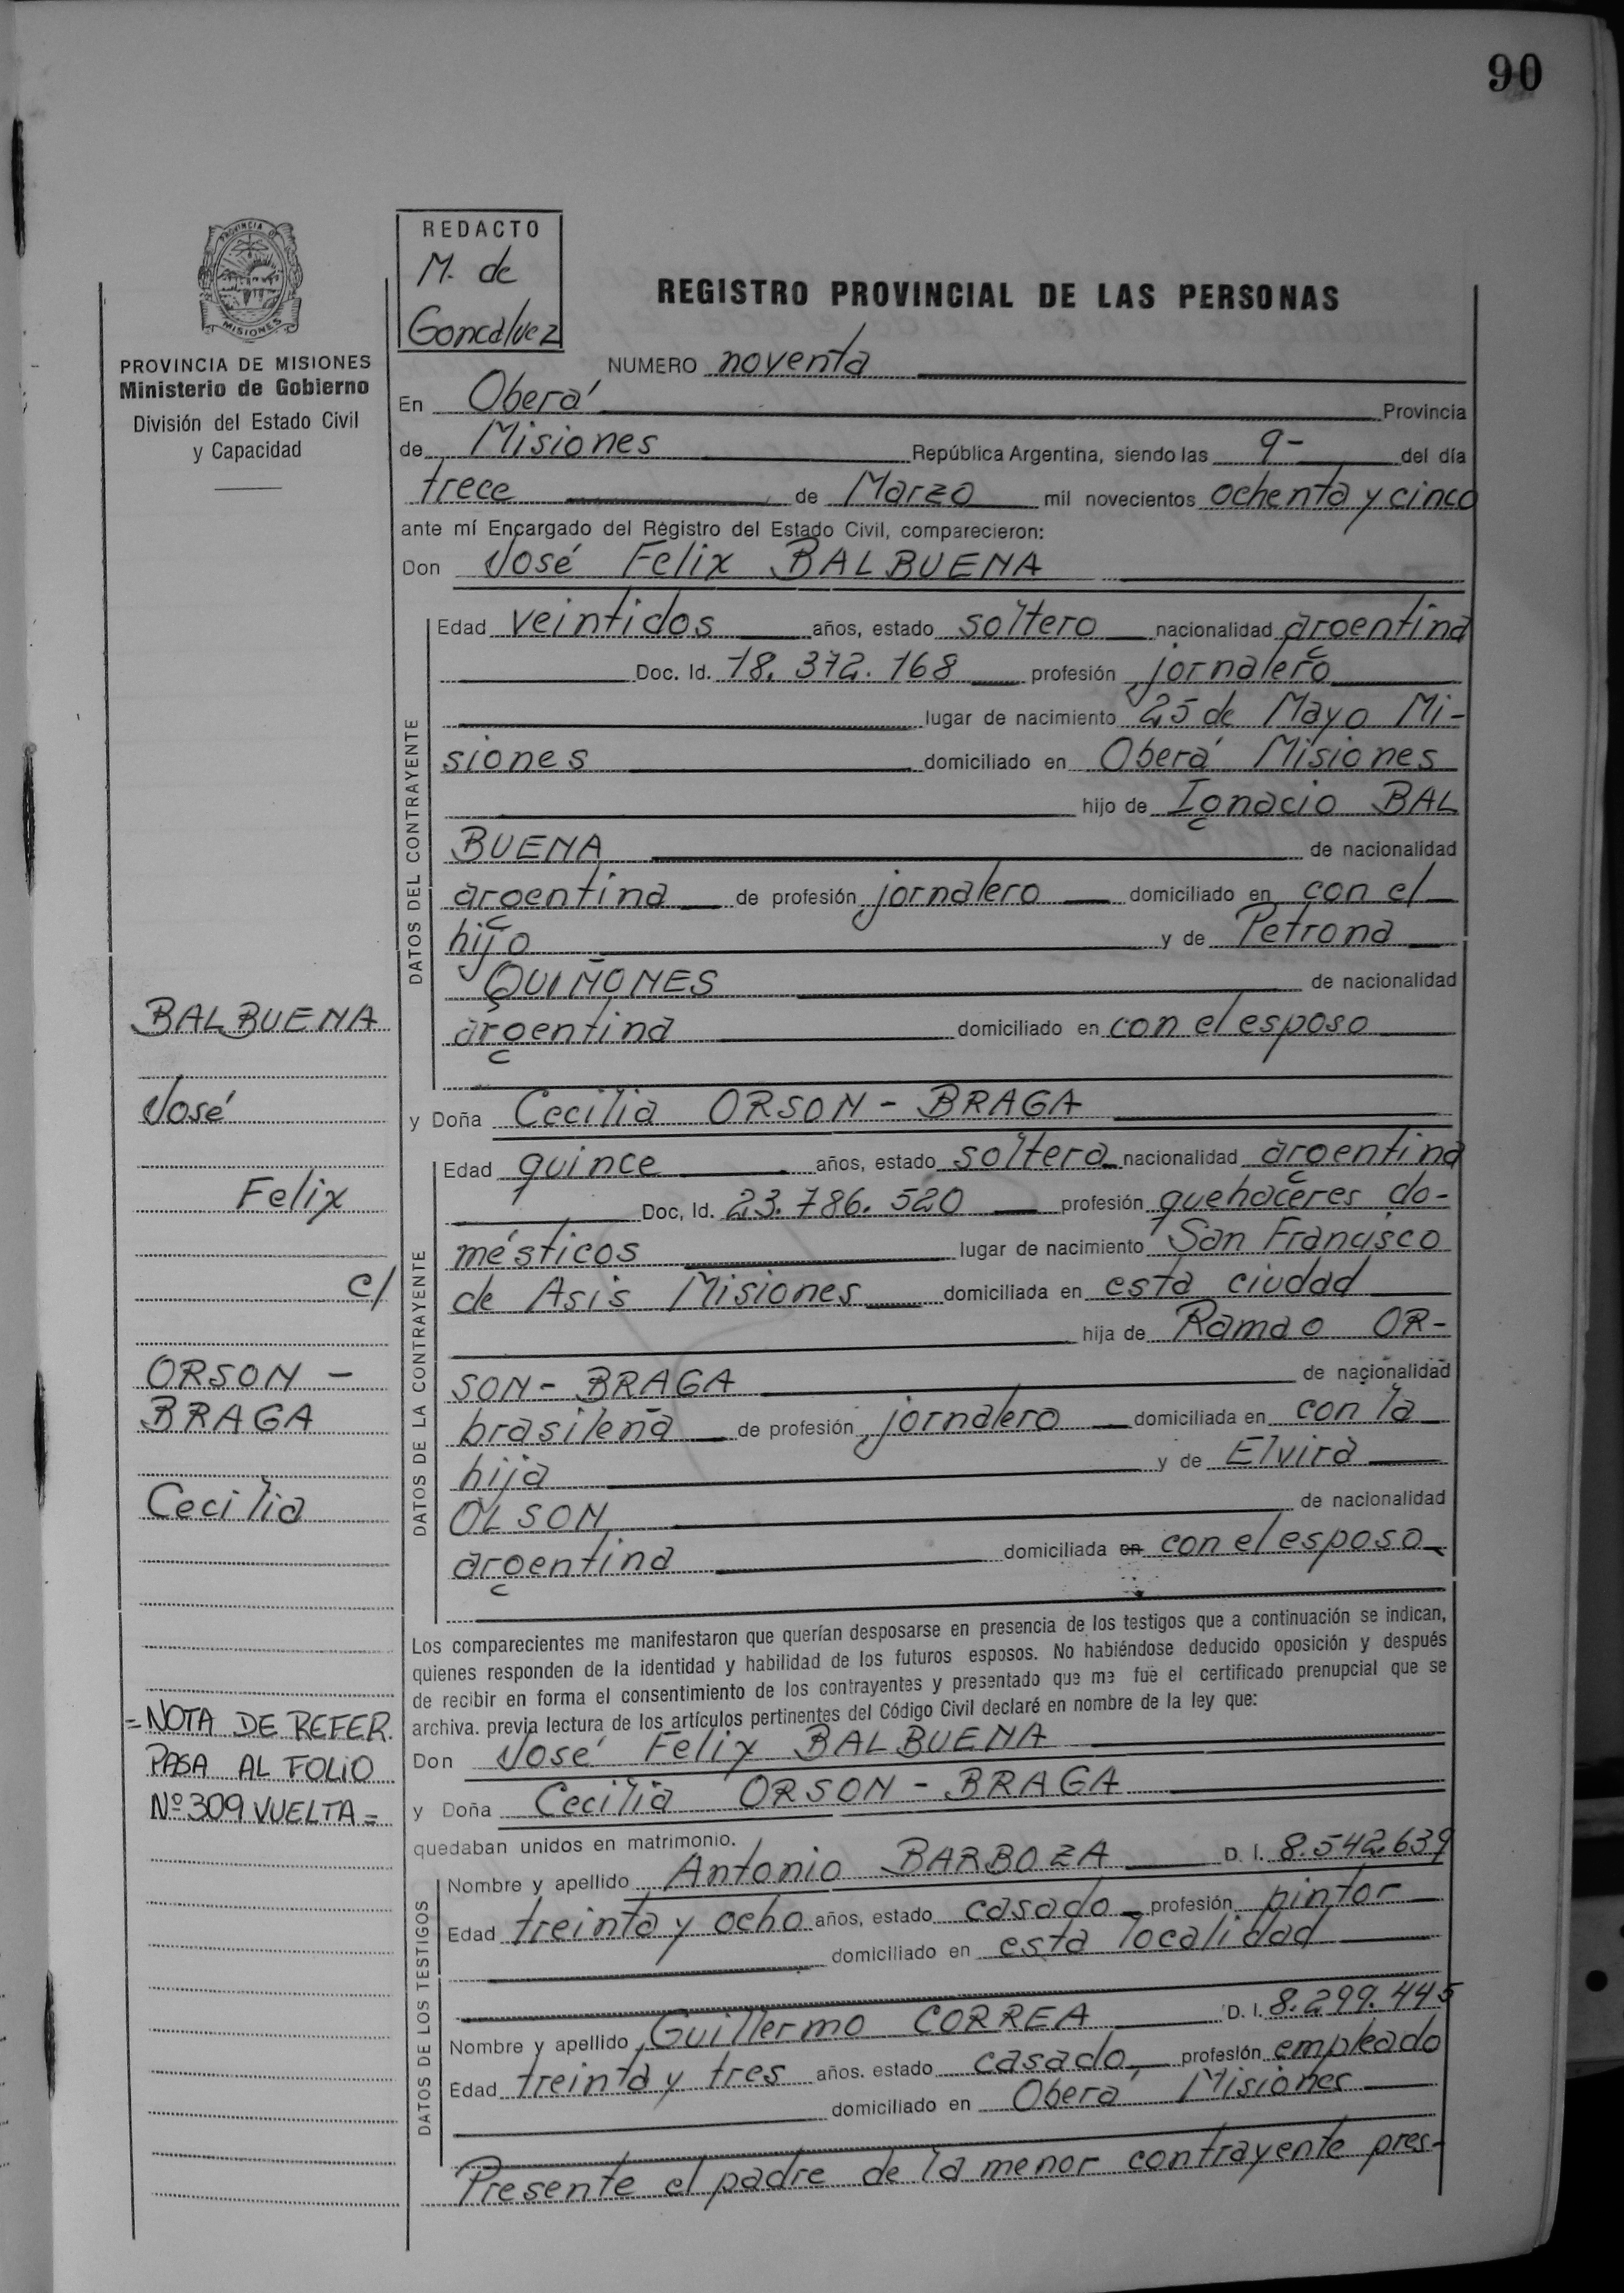 90
PROVINCIA DE
MISIONES
PROVINCIA DE MISIONES
Ministerio de Gobierno
División del Estado Civil
y Capacidad
REDACTO
M. de
Goncalvez
REGISTRO PROVINCIAL DE LAS PERSONAS
NUMERO noventa
En Oberá Provincia
de Misiones República Argentina, siendo las 9- del día
trece de Marzo mil novecientos ochenta y cinco
ante mí Encargado del Registro del Estado Civil, comparecieron:
Don José Felix BALBUENA
DATOS DEL CONTRAYENTE
Edad veintidos años, estado soltero nacionalidad argentina
Doc. Id. 18.372.168 profesión jornalero
lugar de nacimiento 25 de Mayo Mi-
siones domiciliado en Oberá Misiones
hijo de Ignacio BAL
BUENA de nacionalidad
argentina de profesión jornalero domiciliado en con el
hijo y de Petrona
QUIÑONES de nacionalidad
argentina domiciliado en con el esposo
y Doña Cecilia ORSON - BRAGA
DATOS DE LA CONTRAYENTE
Edad quince años, estado soltera nacionalidad argentina
Doc, Id. 23.786.520 profesión quehaceres do-
mésticos lugar de nacimiento San Francisco
de Asis Misiones domiciliada en esta ciudad
hija de Ramao OR-
SON - BRAGA de nacionalidad
brasileña de profesión jornalero domiciliada en con la
hija y de Elvira
OLSON de nacionalidad
argentina domiciliada en con el esposo
Los comparecientes me manifestaron que querían desposarse en presencia de los testigos que a continuación se indican,
quienes responden de la identidad y habilidad de los futuros esposos. No habiéndose deducido oposición y después
de recibir en forma el consentimiento de los contrayentes y presentado que me fué el certificado prenupcial que se
archiva. previa lectura de los artículos pertinentes del Código Civil declaré en nombre de la ley que:
Don José Felix BALBUENA
y Doña Cecilia ORSON - BRAGA
quedaban unidos en matrimonio.
DATOS DE LOS TESTIGOS
Nombre y apellido Antonio BARBOZA D. I. 8.542.639
Edad treinta y ocho años, estado casado profesión pintor
domiciliado en esta localidad
Nombre y apellido Guillermo CORREA D. I. 8.299.445
Edad treinta y tres años. estado casado, profesión empleado
domiciliado en Oberá, Misiones
Presente el padre de la menor contrayente pres-
BALBUENA
José
Felix
c/
ORSON -
BRAGA
Cecilia
= NOTA DE REFER.
PASA AL FOLIO
Nº 309 VUELTA =